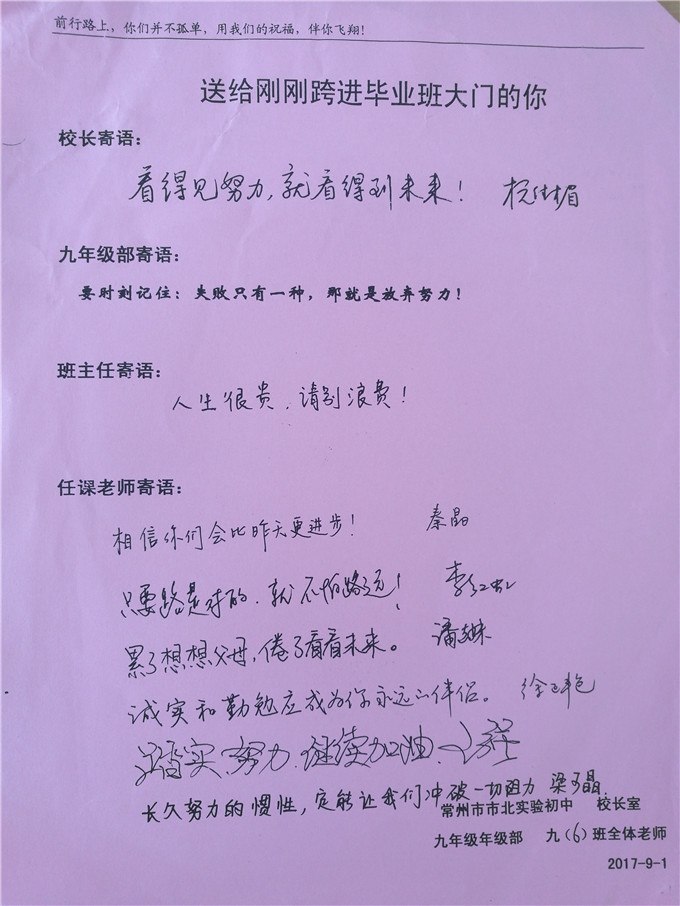 前行路上，你们并不孤单，用我们的祝福，伴你飞翔！
送给刚刚跨进毕业班大门的你
校长寄语：
看得见努力，就看得到未来！
九年级部寄语：
要时刻记住：失败只有一种，那就是放弃努力！
班主任寄语：
人生很贵，请别浪费！
任课老师寄语：
相信你们会比昨天更进步！ 秦晶
只要路是对的，就不怕路远！ 李红虹
累了想想父母，倦了看看未来。 潘
诚实和勤勉应成为你永远的伴侣。 徐
踏实、努力、继续加油、
长久努力的惯性，定能让我们冲破一切阻力 梁晶
常州市市北实验初中 校长室
九年级年级部 九(6)班全体老师
2017-9-1